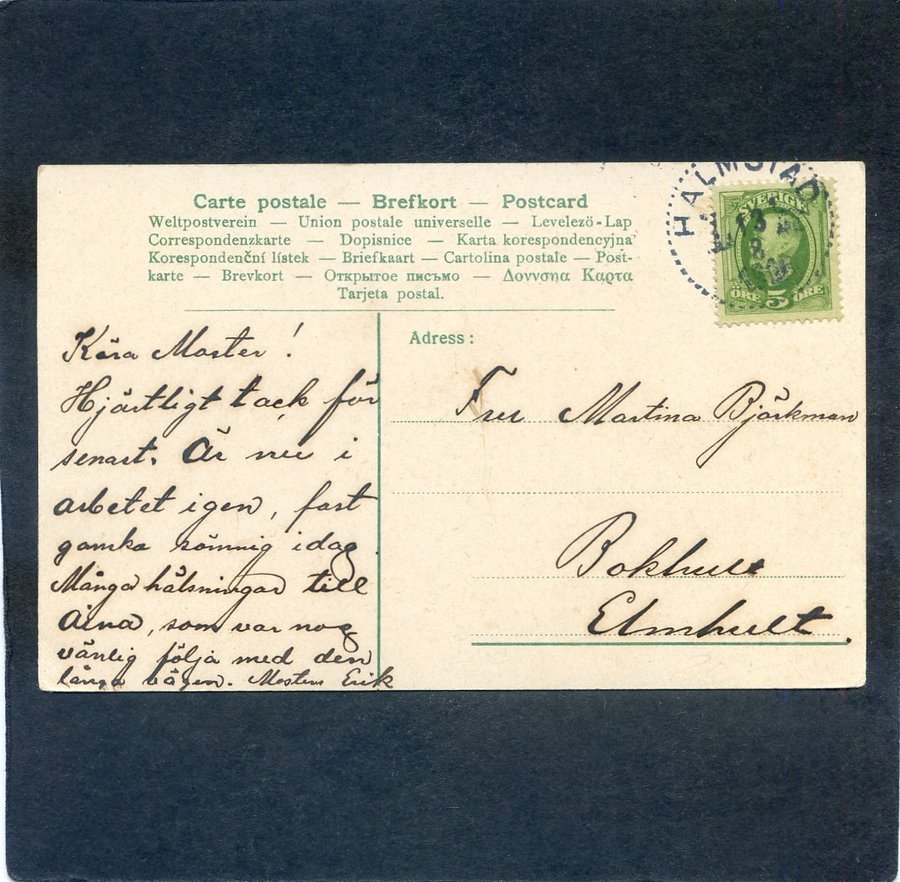 Carte postale — Brefkort — Postcard
Weltpostverein — Union postale universelle — Levelező-Lap
Correspondenzkarte — Dopisnice — Karta korespondencyjna
Korespondenční lístek — Briefkaart — Cartolina postale — Post-
karte — Brevkort — Открытое письмо — Δοννσηα Καρτα
Tarjeta postal.
HALMSTAD
SVERIGE
5
ÖRE ÖRE
Adress:
Kära Moster!
Hjärtligt tack för
senast. Är nu i
arbetet igen, fast
ganska sömnig idag.
Många hälsningar till
Aina, som var nog
vänlig följa med den
långa vägen. Mosters Erik
Fru Martina Björkman
Bokhult
Elmhult.